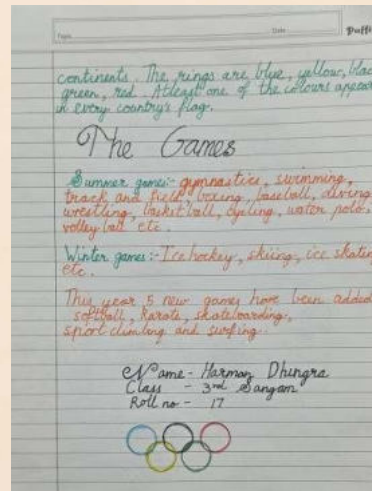 Topic
Date
continents. The rings are blue, yallow, blac
green, red. Atleast one of the colours appear
in every country's flag.
The Games
Summer games:- gymnastics, swimming,
track and field, boxing, baseball, diving
wrestling, baskit ball, cycling, water polo,
volley ball etc.
Winter games:- Ice hockey, skiing, ice skatin
etc.
This year 5 new games have been added
softball, karate, skateboarding,
sport climbing and surfing.
Name - Harman Dhingra
Class - 3rd Sangam
Roll no - 17